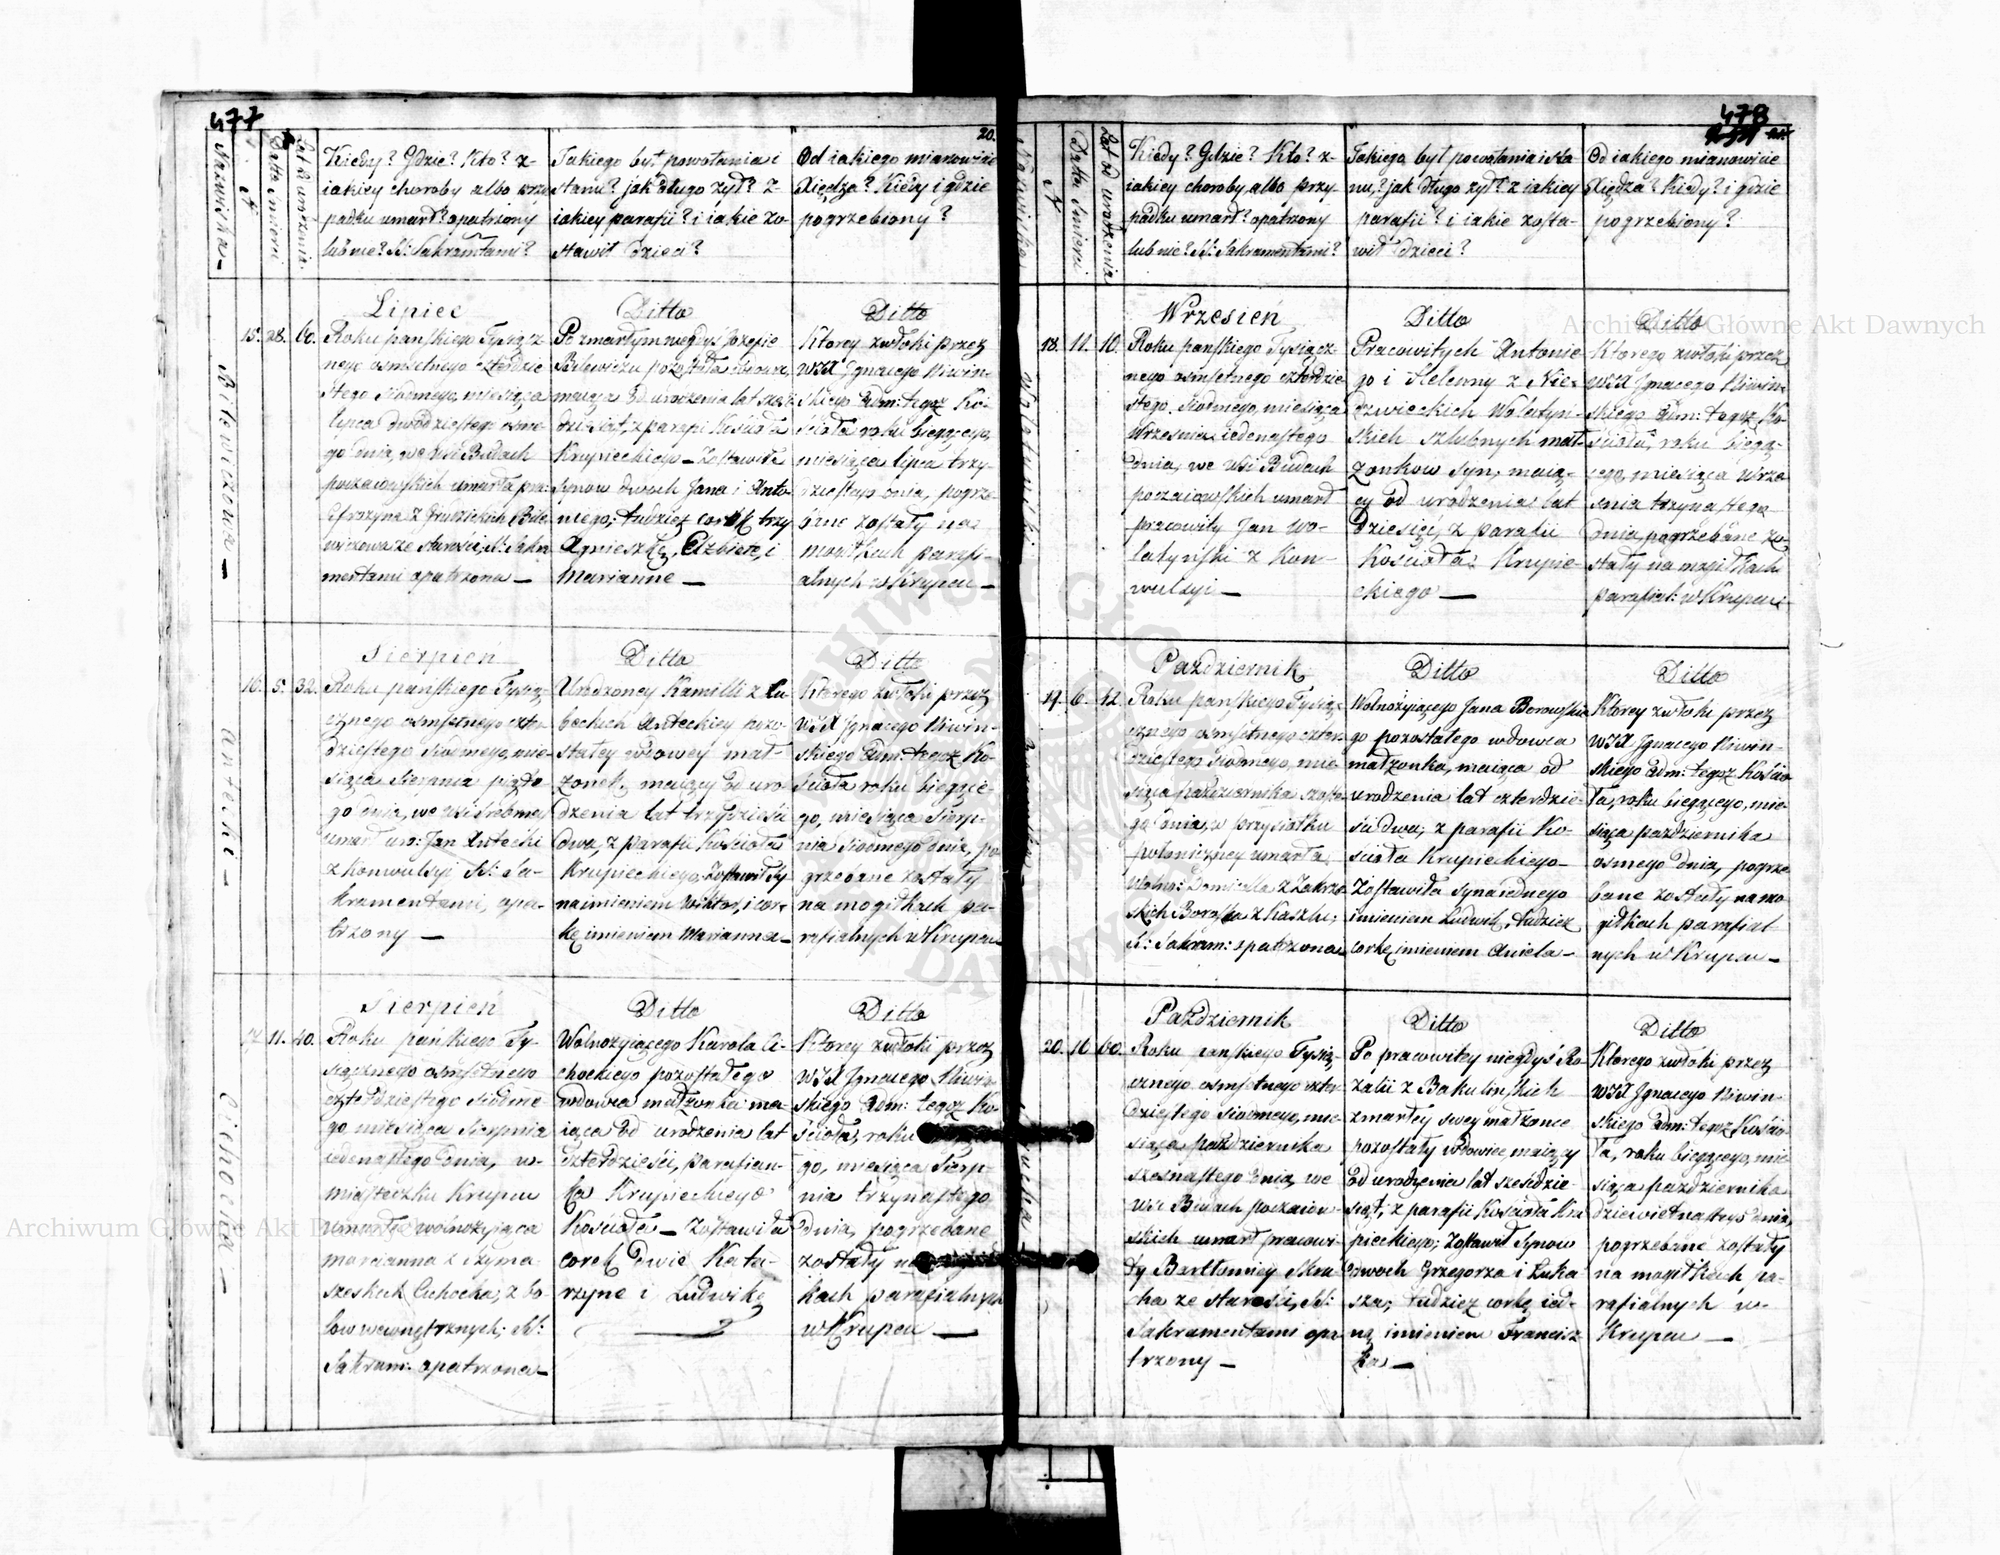 477
20.
Nazwiska
N
Data śmierci
Lat od urodzenia
Kiedy? Gdzie? Kto? z
iakiey choroby albo przy
padku umarł? opatrzony
lub nie? SS: Sakramtami?
Jakiego był powołania i
stanu? jak długo żył? z
iakiey parafii? i iakie zo-
stawił dzieci?
Od iakiego mianowicie
Xiędza? Kiedy i gdzie
pogrzebiony?
Bilewiczowa
15. 28. 60.
Lipiec
Roku pańskiego Tysiącz
nego osmsetnego czterdzie
stego siodmego, miesiąca
lipca dwódziestego osme
go dnia, we wsi Budach
poczaiowskich umarła pra:
Eufrozyna z Bile
wiczowa ze starości, SS: Sakra
mentami opatrzona —
Ditto
Po zmarłym niegdyś Jozefie
Bilewiczu pozostała wdowa,
maiąca od urodzenia lat sześć
dziesiąt, z parafii Kościoła
Krupieckiego — Zostawiła
Synow dwoch Jana i Anto-
niego; tudzież corek trzy
Agnieszkę, Elżbietę, i
Mariannę —
Ditto
Ktorey zwłoki przez
WJX Ignacego Niwin-
skiego Adm: tegoż Ko-
ścioła roku bieżącego,
miesiąca lipca trzy-
dziestego dnia, pogrze
bane zostały na
mogiłkach parafi-
alnych w Krupcu —
Antecki
16. 5. 32.
Sierpien
Roku pańskiego Tysią-
cznego osmsetnego czter
dziestego siodmego, mie-
siąca Sierpnia piąte
go dnia, we wsi Srebrnej
umarł ur: Jan Antecki
z konwulsyi SS: Sa-
kramentami, opa-
trzony —
Ditto
Urodzoney Kamilli z Lu
beckich Anteckiey pozo-
stałey wdowey mał-
żonek, maiący od uro-
dzenia lat trzydzieści
dwa, z parafii Kościoła
Krupieckiego, Zostawił Sy
na imieniem Wiktor, i cor-
kę imieniem Marianna —
Ditto
Ktorego zwłoki przez
WJX Ignacego Niwin-
skiego Adm: tegoż Ko-
ścioła roku bieżące-
go, miesiąca Sierp-
nia siodmego dnia, po
grzebane zostały
na mogiłkach pa-
rafialnych w Krupcu
Cichocka
17. 11. 40.
Sierpień
Roku pańskiego Ty-
siącznego osmsetnego
czterdziestego siodme
go miesiąca Sierpnia
iedenastego dnia, w
miasteczku Krupcu
umarła wolnożyiąca
Marcianna z Szyma
szeskich Cichocka, z bo
low wewnętrznych; SS:
Sakram: opatrzona —
Ditto
Wolnożyiącego Karola Ci-
chockiego pozostałego
wdowca małżonka ma-
iąca od urodzenia lat
czterdzieści, parafian-
ka Krupieckiego
Kościoła — Zostawiła
corek dwie Kata-
rzynę i Ludwikę
Ditto
Ktorey zwłoki przez
WJX Ignacego Niwin
skiego Adm: tegoż Ko-
ścioła, roku
go, miesiąca Sierp-
nia trzynastego
dnia, pogrzebane
zostały na
kach parafialnych
w Krupcu —
478
Nazwiska
N
Data śmierci
Lat od urodzenia
Kiedy? Gdzie? Kto? z
iakiey choroby, albo przy-
padku umarł? opatrzony
lub nie? SS: Sakramentami?
Jakiego był powołania i sta
nu? jak długo żył? z iakiey
parafii? i iakie zosta-
wił dzieci?
Od iakiego mianowicie
Xiędza? Kiedy? i gdzie
pogrzebiony?
Wołatyński
18. 11. 10.
Wrzesień
Roku pańskiego Tysiącz-
nego osmsetnego czterdzie
stego siodmego, miesiąca
Września iedenastego
dnia, we wsi Budach
poczaiowskich umarł
pracowity Jan Wo-
łatyński z Kon-
wulsyi —
Ditto
Pracowitych Antonie-
go i Helenny z Nie-
dzwieckich Wołatyn-
skich szlubnych mał-
żonkow syn, maią-
cy od urodzenia lat
dziesięć, z parafii
Kościoła Krupie-
ckiego —
Ditto
Ktorego zwłoki przez
WJX Ignacego Niwin-
skiego Adm: tegoż Ko-
ścioła, roku bieżą-
cego, miesiąca Wrze
snia trzynastego
dnia pogrzebane zo-
stały na mogiłkach
parafial: w Krupcu
19. 6. 42.
Październik
Roku pańskiego Tysią-
cznego osmsetnego czter
dziestego siodmego, mie
siąca października szoste
go dnia, w przysiołku
połoniczney umarła,
Wolno: Domicella z Zakrze
skich Borowska z kaszlu;
SS: Sakram: opatrzona
Ditto
Wolnożyiącego Jana Borowskie
go pozostałego wdowca
małżonka, maiąca od
urodzenia lat czterdzie-
ści dwa, z parafii Ko-
ścioła Krupieckiego —
Zostawiła syna iednego
imieniem Ludwik, tudzież
corkę imieniem Aniela —
Ditto
Ktorey zwłoki przez
WJX Ignacego Niwin-
skiego Adm: tegoż Kościo
ła, roku bieżącego, mie-
siąca października
osmego dnia, pogrze
bane zostały na mo
giłkach parafial
nych w Krupcu —
20. 16. 60.
Październik
Roku pańskiego Tysią-
cznego osmsetnego czter
dziestego siodmego, mie
siąca października
szesnastego dnia, we
wsi Budach poczaiow-
skich umarł pracowi-
ty Bartłomiey Skru
cha ze starości, SS:
Sakramentami opa
trzony —
Ditto
Po pracowitey niegdyś Ro
zalii z Bakulinskich
zmarłey swey małżonce
pozostały wdowiec maiący
od urodzenia lat sześćdzie-
siąt, z parafii Kościoła Kru
pieckiego; Zostawił Synow
dwoch Grzegorza i Łuka
sza; tudzież corkę ied-
ną imieniem Francisz
ka —
Ditto
Ktorego zwłoki przez
WJX Ignacego Niwin-
skiego Adm: tegoż Kościo
ła, roku bieżącego, mie
siąca października
dziewiętnastego dnia,
pogrzebane zostały
na mogiłkach pa-
rafialnych w
Krupcu —
Archiwum Główne Akt Dawnych
Archiwum Główne Akt Dawnych